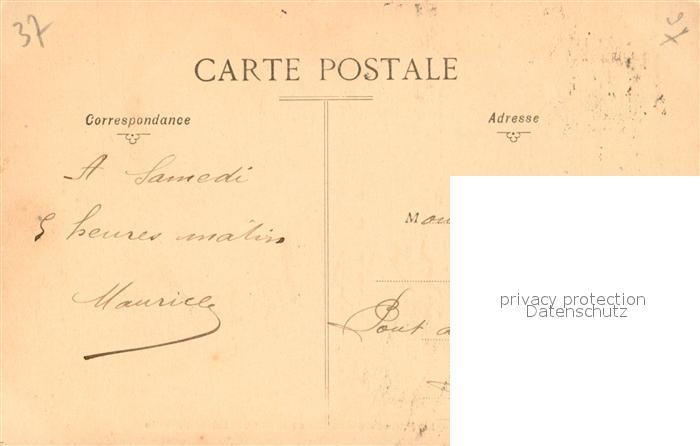 37
CARTE POSTALE
Correspondance
Adresse
A Samedi
5 heures matin
Maurice
Mon
Pont a
privacy protection
Datenschutz